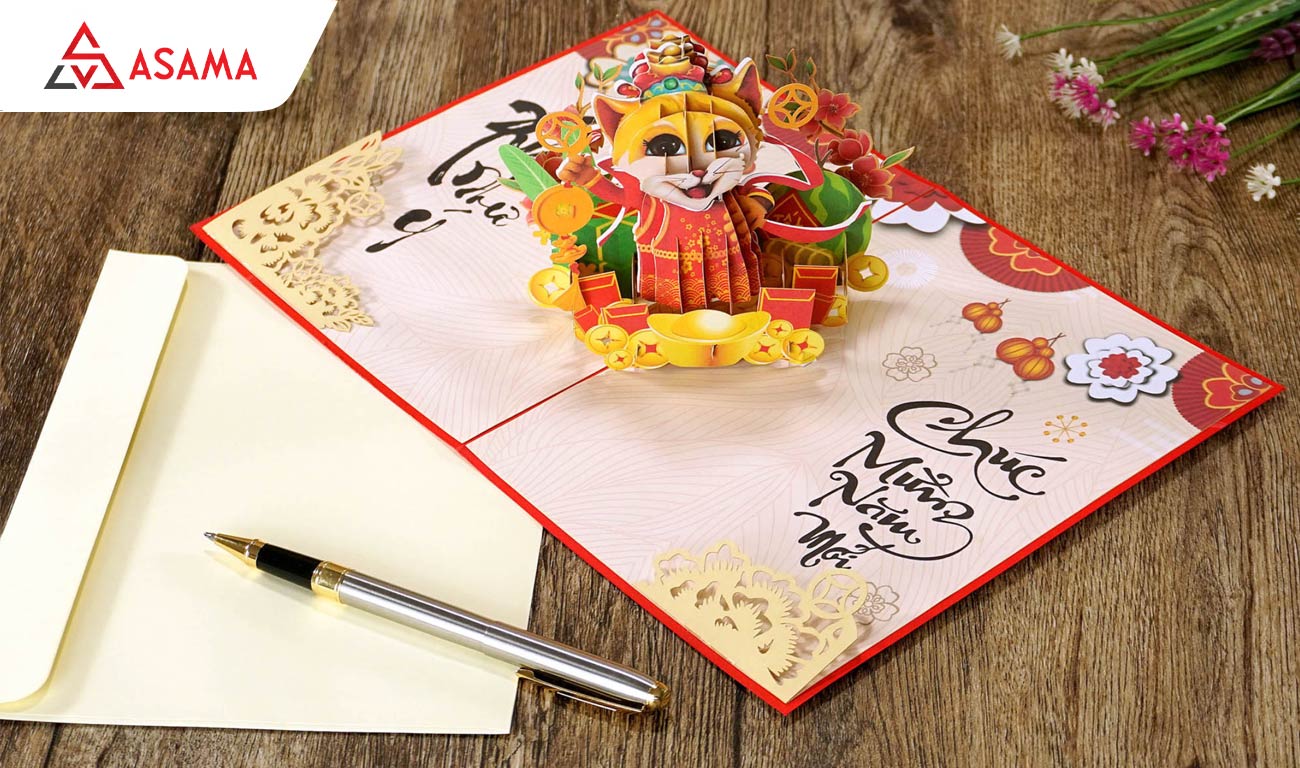 ASAMA
Như
Ý
Chúc
Mừng
Năm
Mới